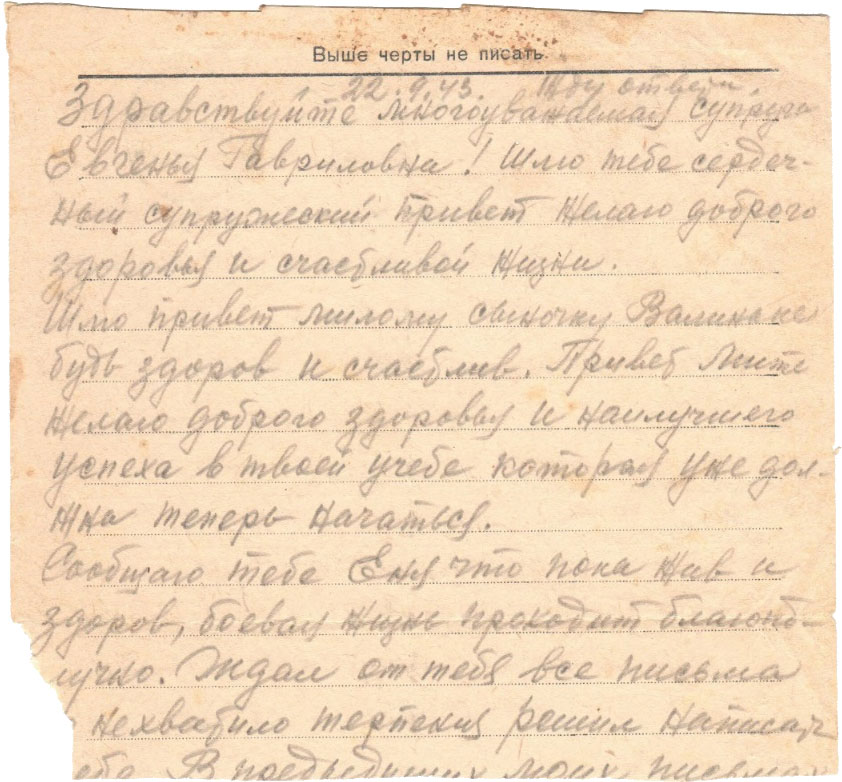 Выше черты не писать
22.9.43. Жду ответа.
Здравствуйте многоуважаемая супруга
Евгенья Гавриловна! Шлю тебе сердеч-
ный супружеский привет желаю доброго
здоровья и счастливой жизни.
Шлю привет милому сыночку
будь здоров и счастлив. Привет Мите
желаю доброго здоровья и наилучшего
успеха в твоей учебе которая уже дол-
жна теперь начаться.
Сообщаю тебе Еня что пока жив и
здоров, боевая жизнь проходит благопо-
лучно. Ждал от тебя все письма
нехватило терпения решил написать
В предыдущих моих письмах